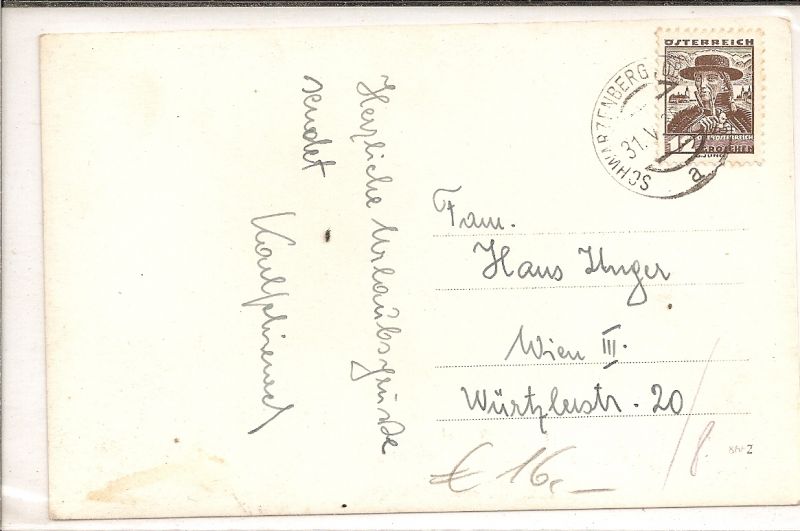 Herzliche Urlaubsgrüsse
sendet
ÖSTERREICH
12
GROSCHEN
SCHWARZENBERG
31. V.
a
Fam.
Hans Unger
Wien III.
Würtzlerstr. 20
€ 16,–
/8.